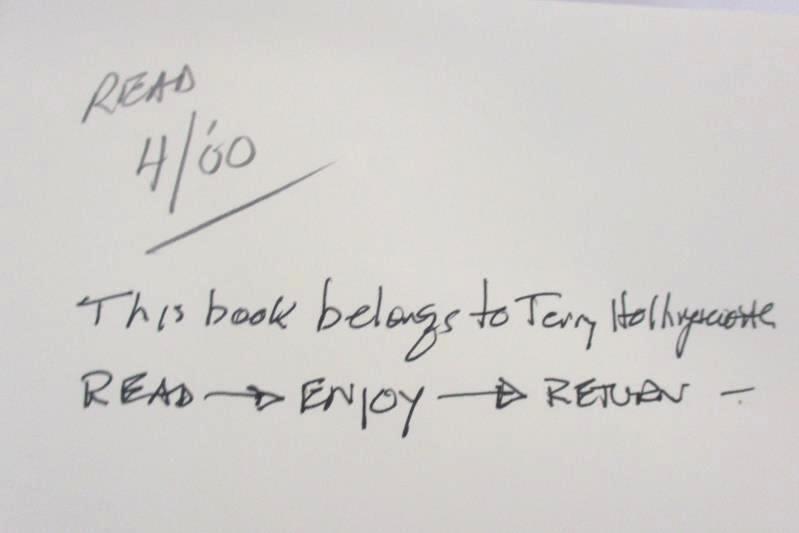 READ
4/'00
This book belongs to Terry
READ → ENJOY → RETURN —